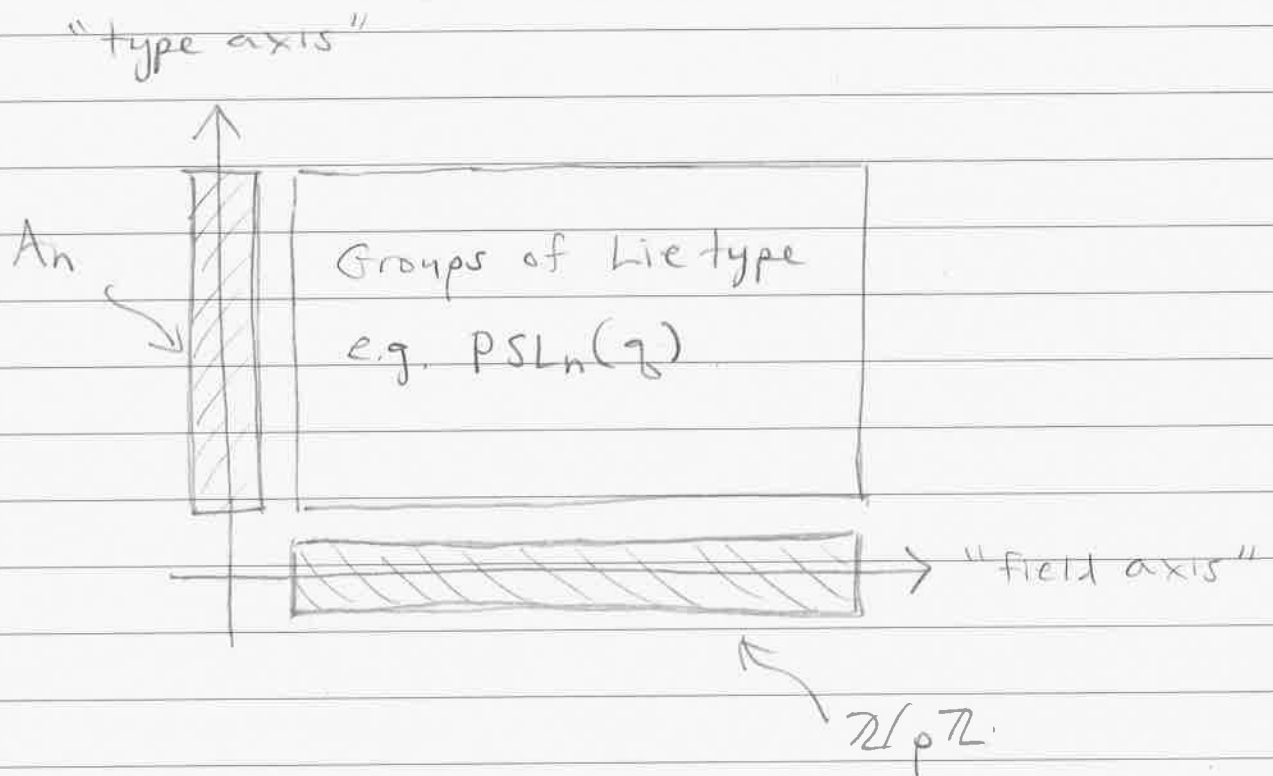 "type axis"
An
Groups of Lie type
e.g. PSLn(q)
"field axis"
ℤ/pℤ.